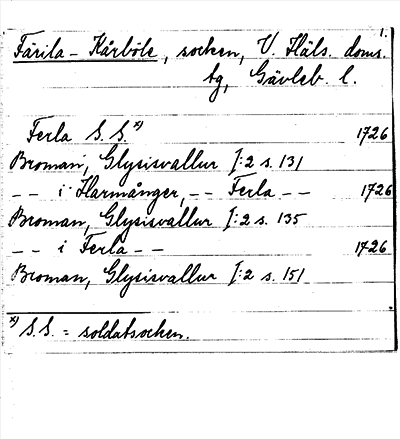 1.
Färila - Kårböle, socken, V. Häls. doms.
tg, Gävleb. l.
Ferla S. S. x) 1726
Broman, Glysisvallur I:2 s. 131
-- i Harmånger, -- Ferla -- 1726
Broman, Glysisvallur I:2 s. 135
-- i Ferla -- 1726
Broman, Glysisvallur I:2 s. 151
x) S.S. = soldatsocken.